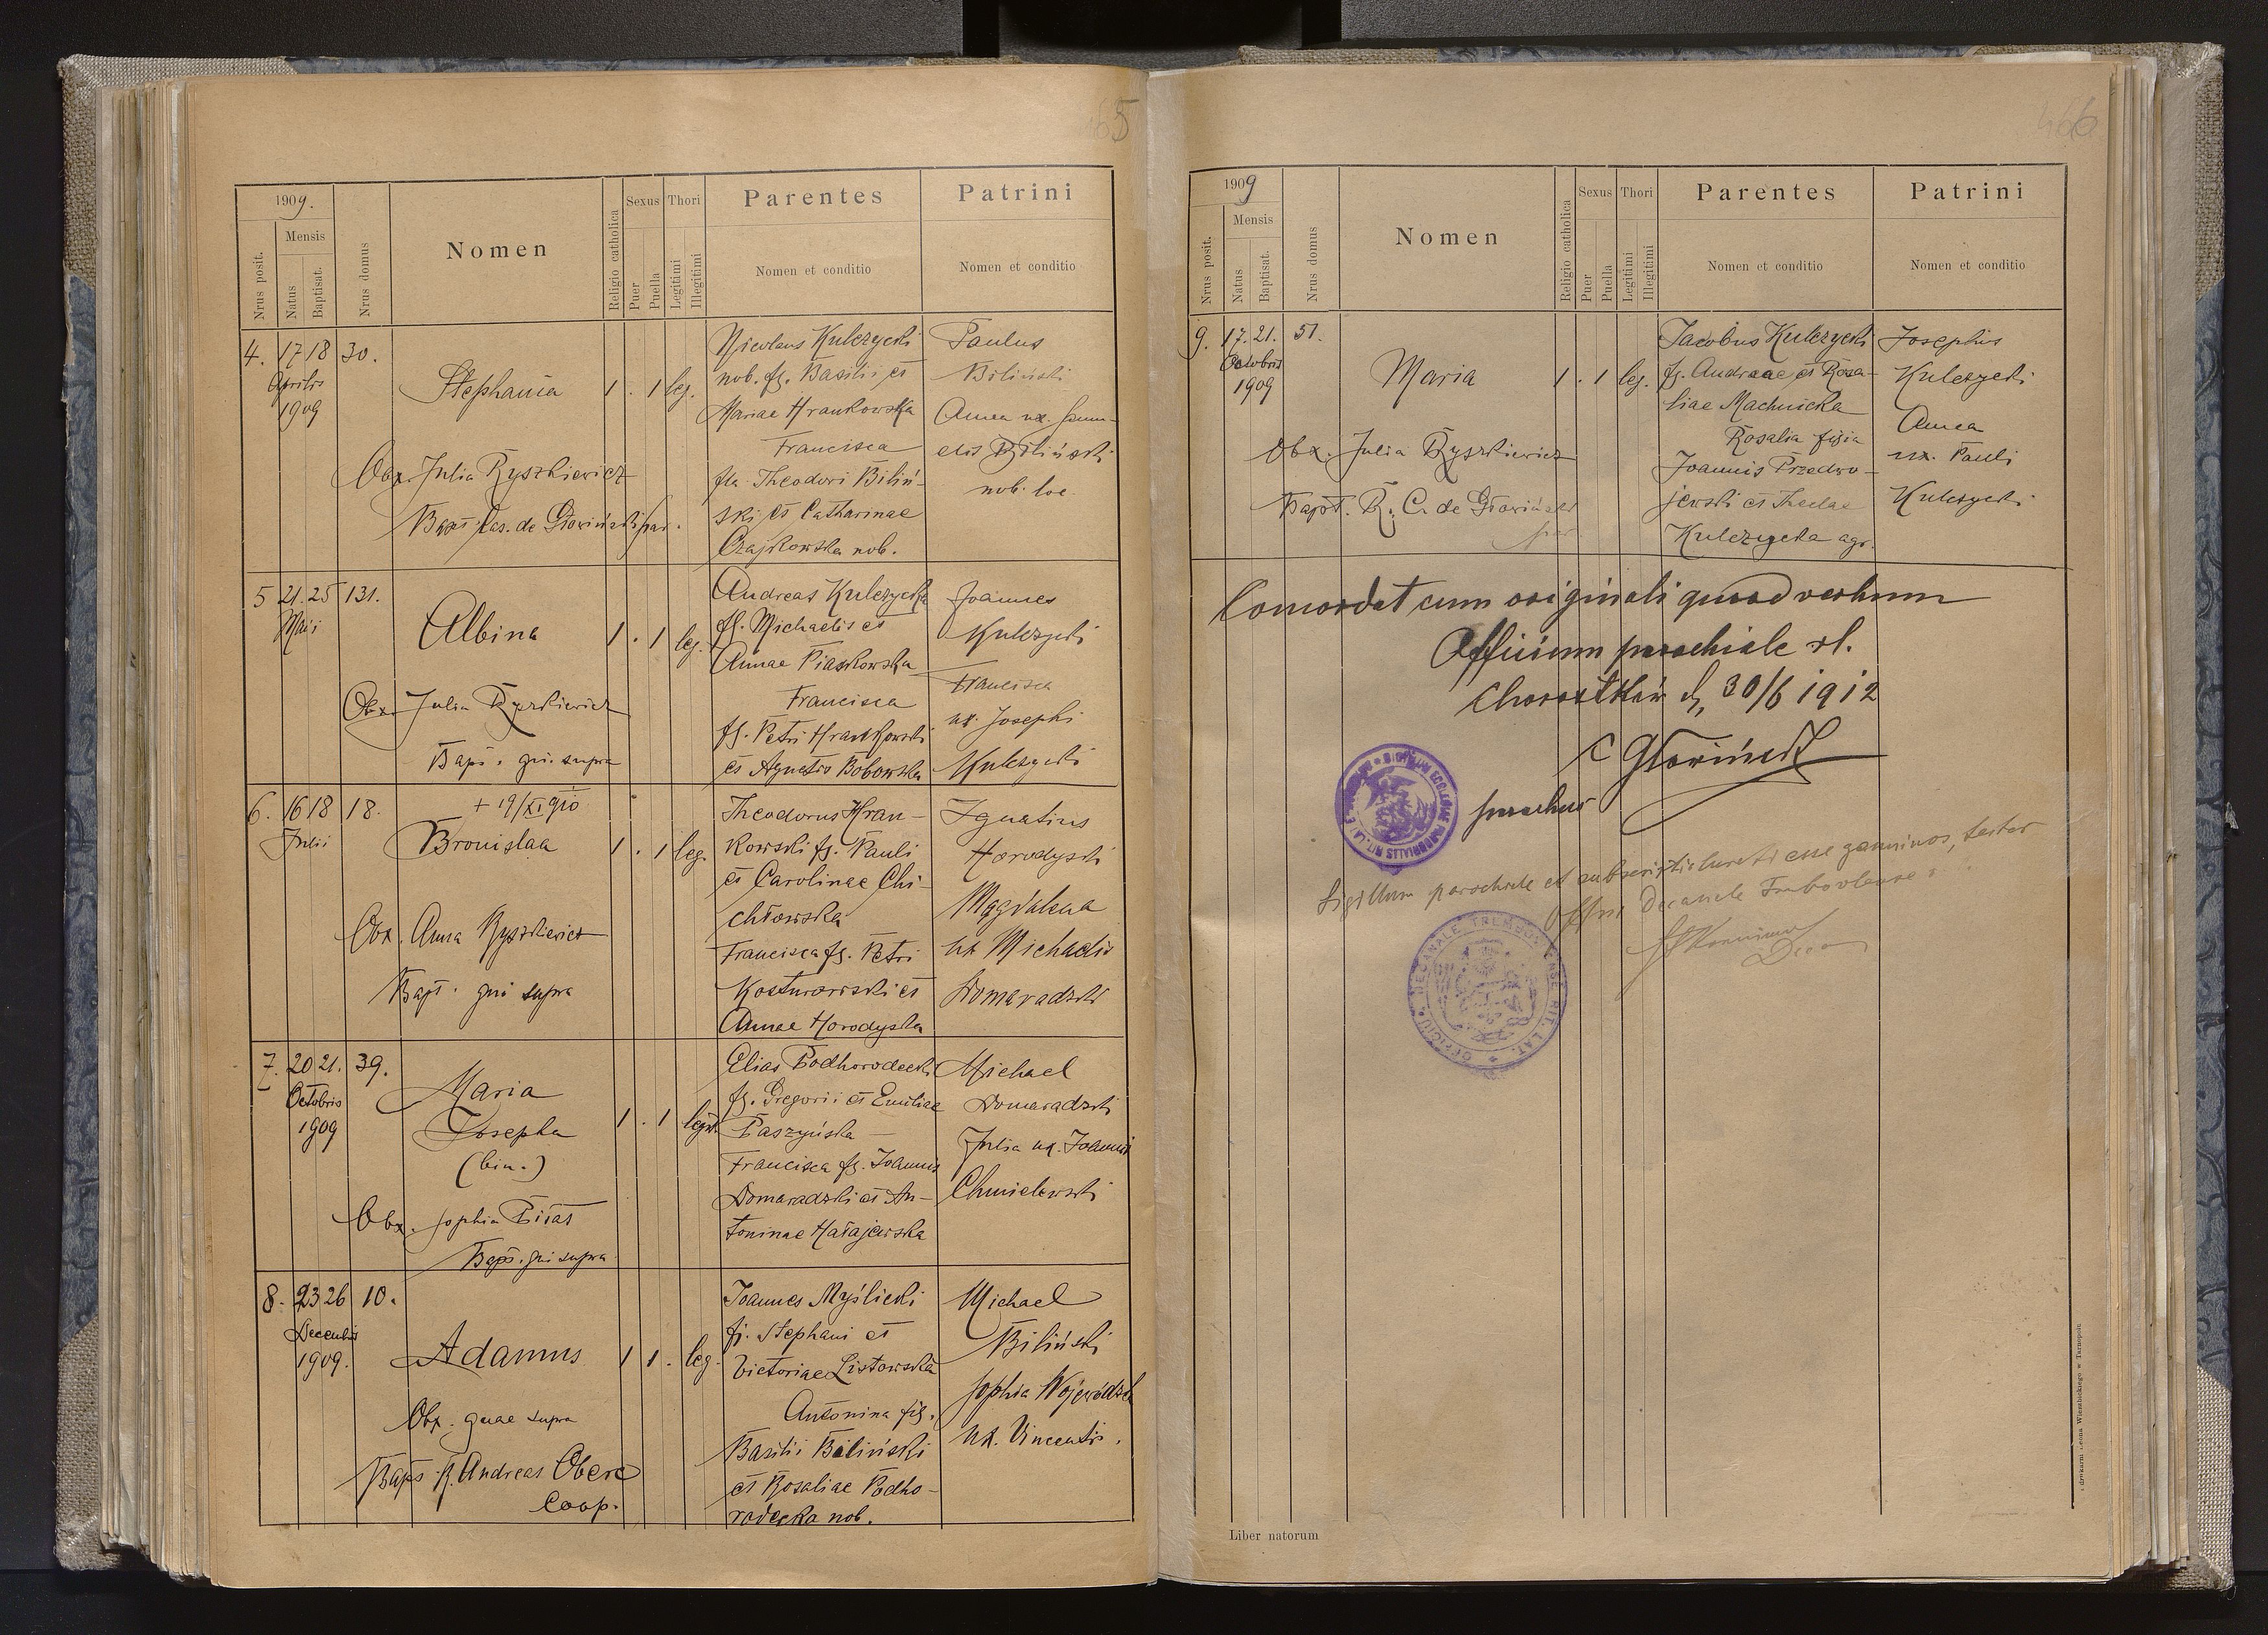 65
1909.
Nrus posit.
Mensis
Natus
Baptisat.
Nrus domus
Nomen
Religio catholica
Sexus
Puer
Puella
Thori
Legitimi
Illegitimi
Parentes
Nomen et conditio
Patrini
Nomen et conditio
4. 17 18 30.
Aprilis
1909
Stephania 1 . 1 leg.
Obx. Julia Ryszkiewicz
Bapt. Cas. de Głowiński par.
Nicolaus Kulczycki
nob. fs. Basilii et
Mariae Hrankowska
Francisca
fla Theodori Biliń-
ski et Catharinae
Czajkowska nob.
Paulus
Biliński
Anna ux.
Biliński
nob. loc.
5 21. 25 131.
Maii
Albina 1 . 1 leg.
Obx. Julia Ryszkiewicz
Bapt. qui supra
Andreas Kulczycki
fs. Michaelis et
Annae Piaskowska
Francisca
fs. Petri Hrankowski
et Agnetis Bobowska
Joannes
Kulczycki
Francisca
ux. Josephi
Kulczycki
6. 16 18 18.
Julii
+ 19/XI 910
Bronislaa 1 . 1 leg.
Obx. Anna Ryszkiewicz
Bapt. qui supra
Theodorus Hran-
kowski fs. Pauli
et Carolinae Chi-
chłowska
Francisca fs. Petri
Kosturowski et
Annae Horodyska
Ignatius
Horodyski
Magdalena
ux Michaelis
Domaradzki
7. 20 21. 39.
Octobris
1909
Maria
Josepha
(bin.)
1 . 1 legit.
Obx. Sophia Piłat
Bapt. qui supra
Elias Podhorodecki
fs. Gregorii et Emiliae
Paszyńska —
Francisca fs. Joannis
Domaradzki et An-
toninae Hałajewska
Michael
Domaradzki
Julia ux. Joannis
Chmielewski
8. 23 26 10.
Decembris
1909.
Adamus 1 1 . leg.
Obx. quae supra
Bapt. R. Andreas Oberc
Coop.
Joannes Myślicki
fs. Stephani et
Victoriae Listowska
Antonina fig.
Basilii Biliński
et Rosaliae Podho-
rodecka nob.
Michael
Biliński
Sophia
ux. Vincentii.
466
1909
Nrus posit.
Mensis
Natus
Baptisat.
Nrus domus
Nomen
Religio catholica
Sexus
Puer
Puella
Thori
Legitimi
Illegitimi
Parentes
Nomen et conditio
Patrini
Nomen et conditio
9. 17. 21. 51.
Octobris
1909
Maria 1 . 1 leg.
Obx. Julia Ryszkiewicz
Bapt. R. C. de Głowiński
par
Jacobus Kulczycki
fs. Andreae et Rosa-
liae Machnicka
Rosalia filia
Joannis Przedwo-
jewski et Theclae
Kulczycka agr.
Josephus
Kulczycki
Anna
ux. Pauli
Kulczycki
Concordat cum originali quoad verbum
Officium parochiale rl.
Chorostków d, 30/6 1912
C Głowiński
parochus
Sigillum parochiale et subscriptionem esse genuinos, testor
Offm Decanale Trembovlense:
OFFICIUM DECANALE TREMBOVLENSE RIT. LAT.
Liber natorum
Z drukarni Leona Wierzbickiego w Tarnopolu